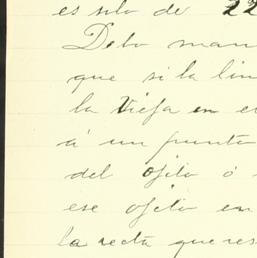 es solo de 22
Debo man
que si la lin
la Vieja en e
á un punto
del ojito ó
ese ojito en
la recta que res